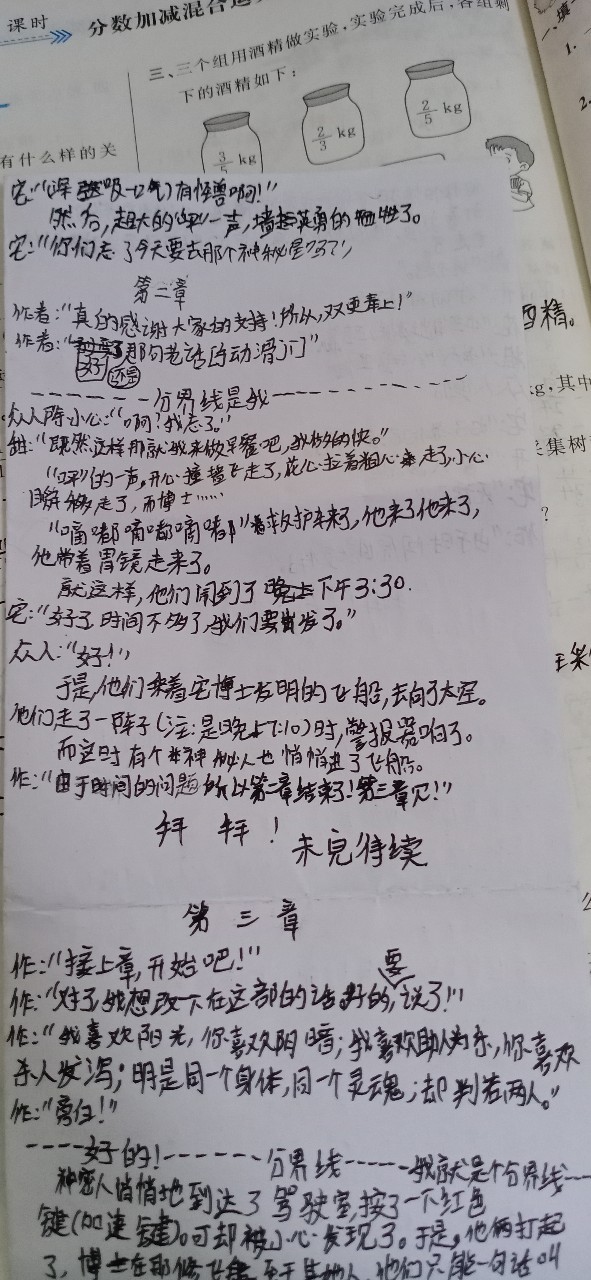 课时
分数加减混合运
三、三个组用酒精做实验,实验完成后,各组剩
下的酒精如下:
3/5 kg
2/3 kg
2/5 kg
有什么样的关
一、填
1.
2.
宅:“(深吸一口气)有怪兽啊!”
然后,超大的“呯”一声,墙英勇的牺牲了。
宅:“你们忘了今天要去那个神秘星?了?”
第二章
作者:“真的感谢大家的支持!所以,双更奉上!”
作者:“好还是那句老话自动滑门”
------分界线是我------
众人除小心:“啊?我忘了。”
甜:“既然这样那就我来做早餐吧,我做的快。”
“呯”的一声,开心撞墙飞走了,花心拉着粗心走了,小心
自觉走了,而博士……
“嘀嘟嘀嘟嘀嘟”救护车来了,他来了他来了,
他带着胃镜走来了。
就这样,他们闹到了下午3:30.
宅:“好了,时间不够了,我们要出发了。”
众人:“好!”
于是,他们乘着宅博士发明的飞船,去向了太空。
他们走了一阵子(注:是晚上7:10)时,警报器响了。
而这时有个神秘人也悄悄进了飞船。
作:“由于时间的问题所以第二章结束了!第三章见!”
拜 拜!
未完待续
酒精。
kg,其中
采集树
?
第三章
作:“接上章,开始吧!”
作:“对了,我想改一下在这部的话,好的,要说了!”
作:“我喜欢阳光,你喜欢阴暗;我喜欢助人为乐,你喜欢
杀人发泻;明是同一个身体,同一个灵魂;却判若两人。”
作:“旁白!”
----好的!------分界线-----我就是个分界线---
神密人悄悄地到达了驾驶室,按了一下红色
键(加速键)。可却被小心发现了。于是,他俩打起
了,博士在那修飞船,至于其他人,他们只能一句话叫